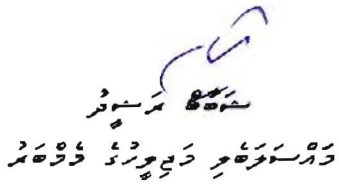 ޝަބާބް ރަޝީދު
މައްސަލަބެލި މަޖިލީހުގެ މެމްބަރު